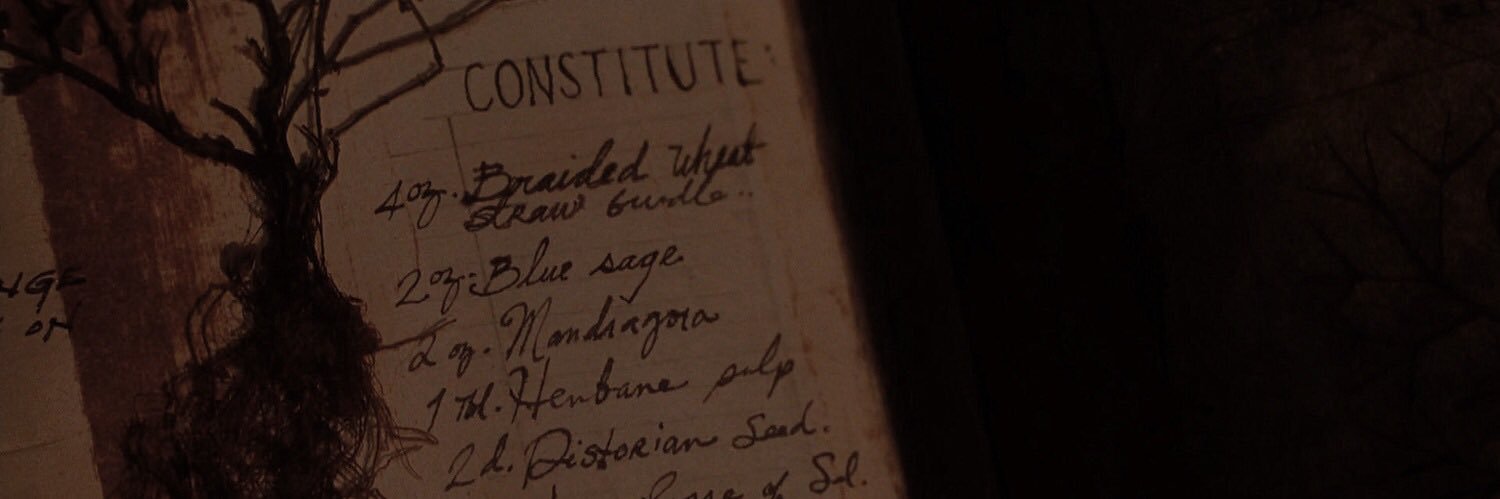 CONSTITUTE:
4oz. Braided Wheat
straw bundle..
2oz. Blue sage
2 oz. Mandragora
1 Tbl. Henbane pulp
2d. Distorian Seed.
of Sol.
ON